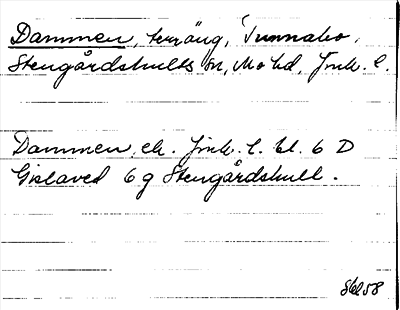 Dammen, terräng, Tunnabo,
Stengårdshults sn, Mo hd, Jönk. l.
Dammen, ek. Jönk. l. bl. 6 D
Gislaved 6 g Stengårdshult.
58